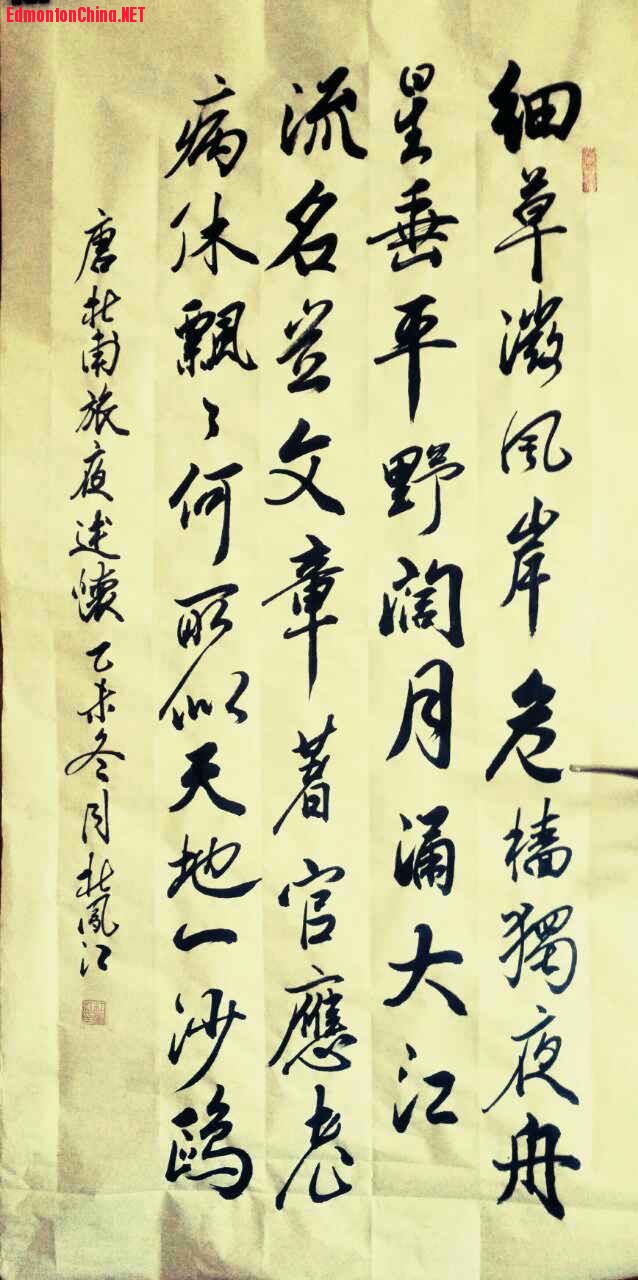 EdmontonChina.NET
細草微風岸危檣獨夜舟
星垂平野闊月涌大江
流名豈文章著官應老
病休飄〻何所似天地一沙鷗
唐杜甫旅夜述懷乙未冬月杜鳳江